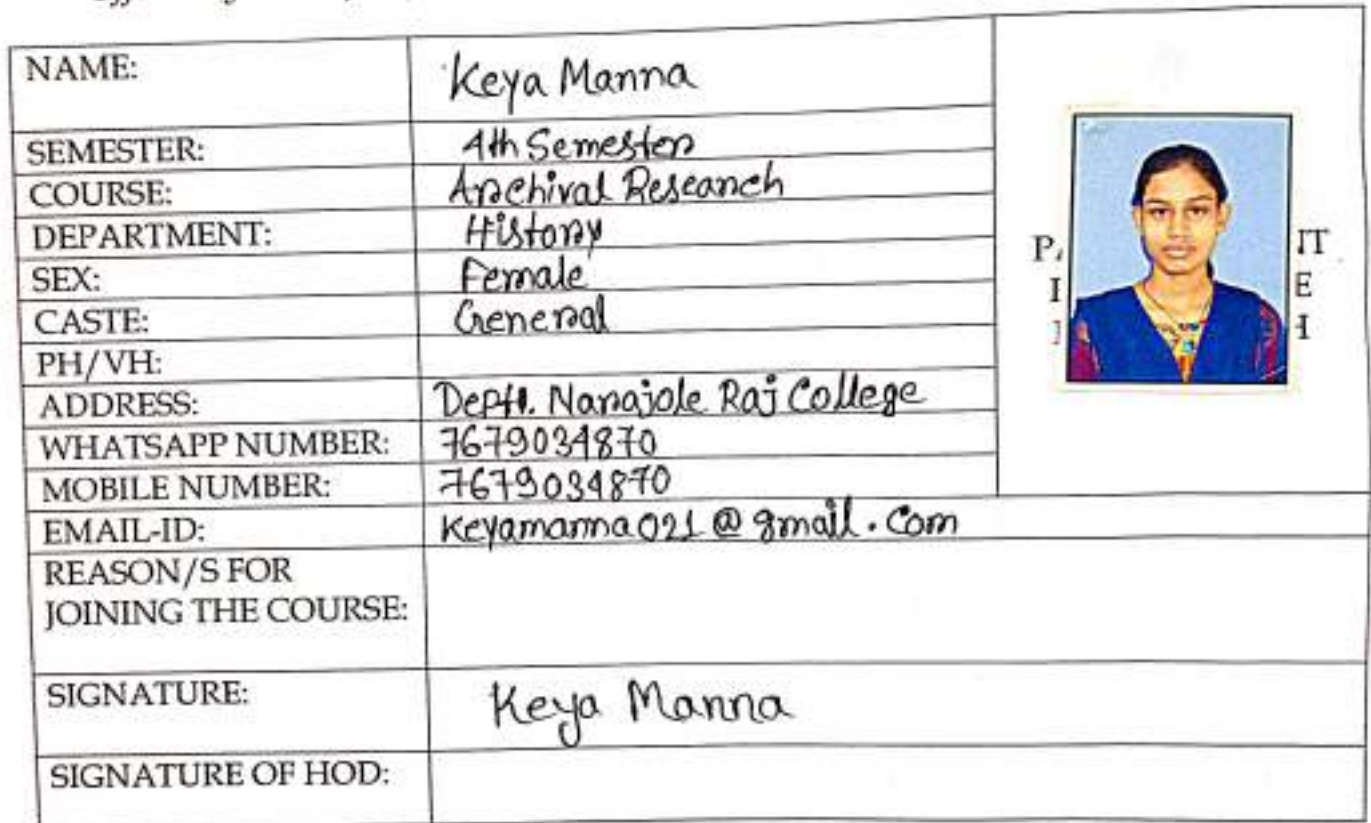 NAME: Keya Manna
SEMESTER: 4th Semester
COURSE: Archival Research
DEPARTMENT: History
SEX: Female
CASTE: General
PH/VH:
ADDRESS: Deptt. Narajole Raj College
WHATSAPP NUMBER: 7679034870
MOBILE NUMBER: 7679034870
EMAIL-ID: Keyamanna021@gmail.com
REASON/S FOR
JOINING THE COURSE:
SIGNATURE: Keya Manna
SIGNATURE OF HOD: